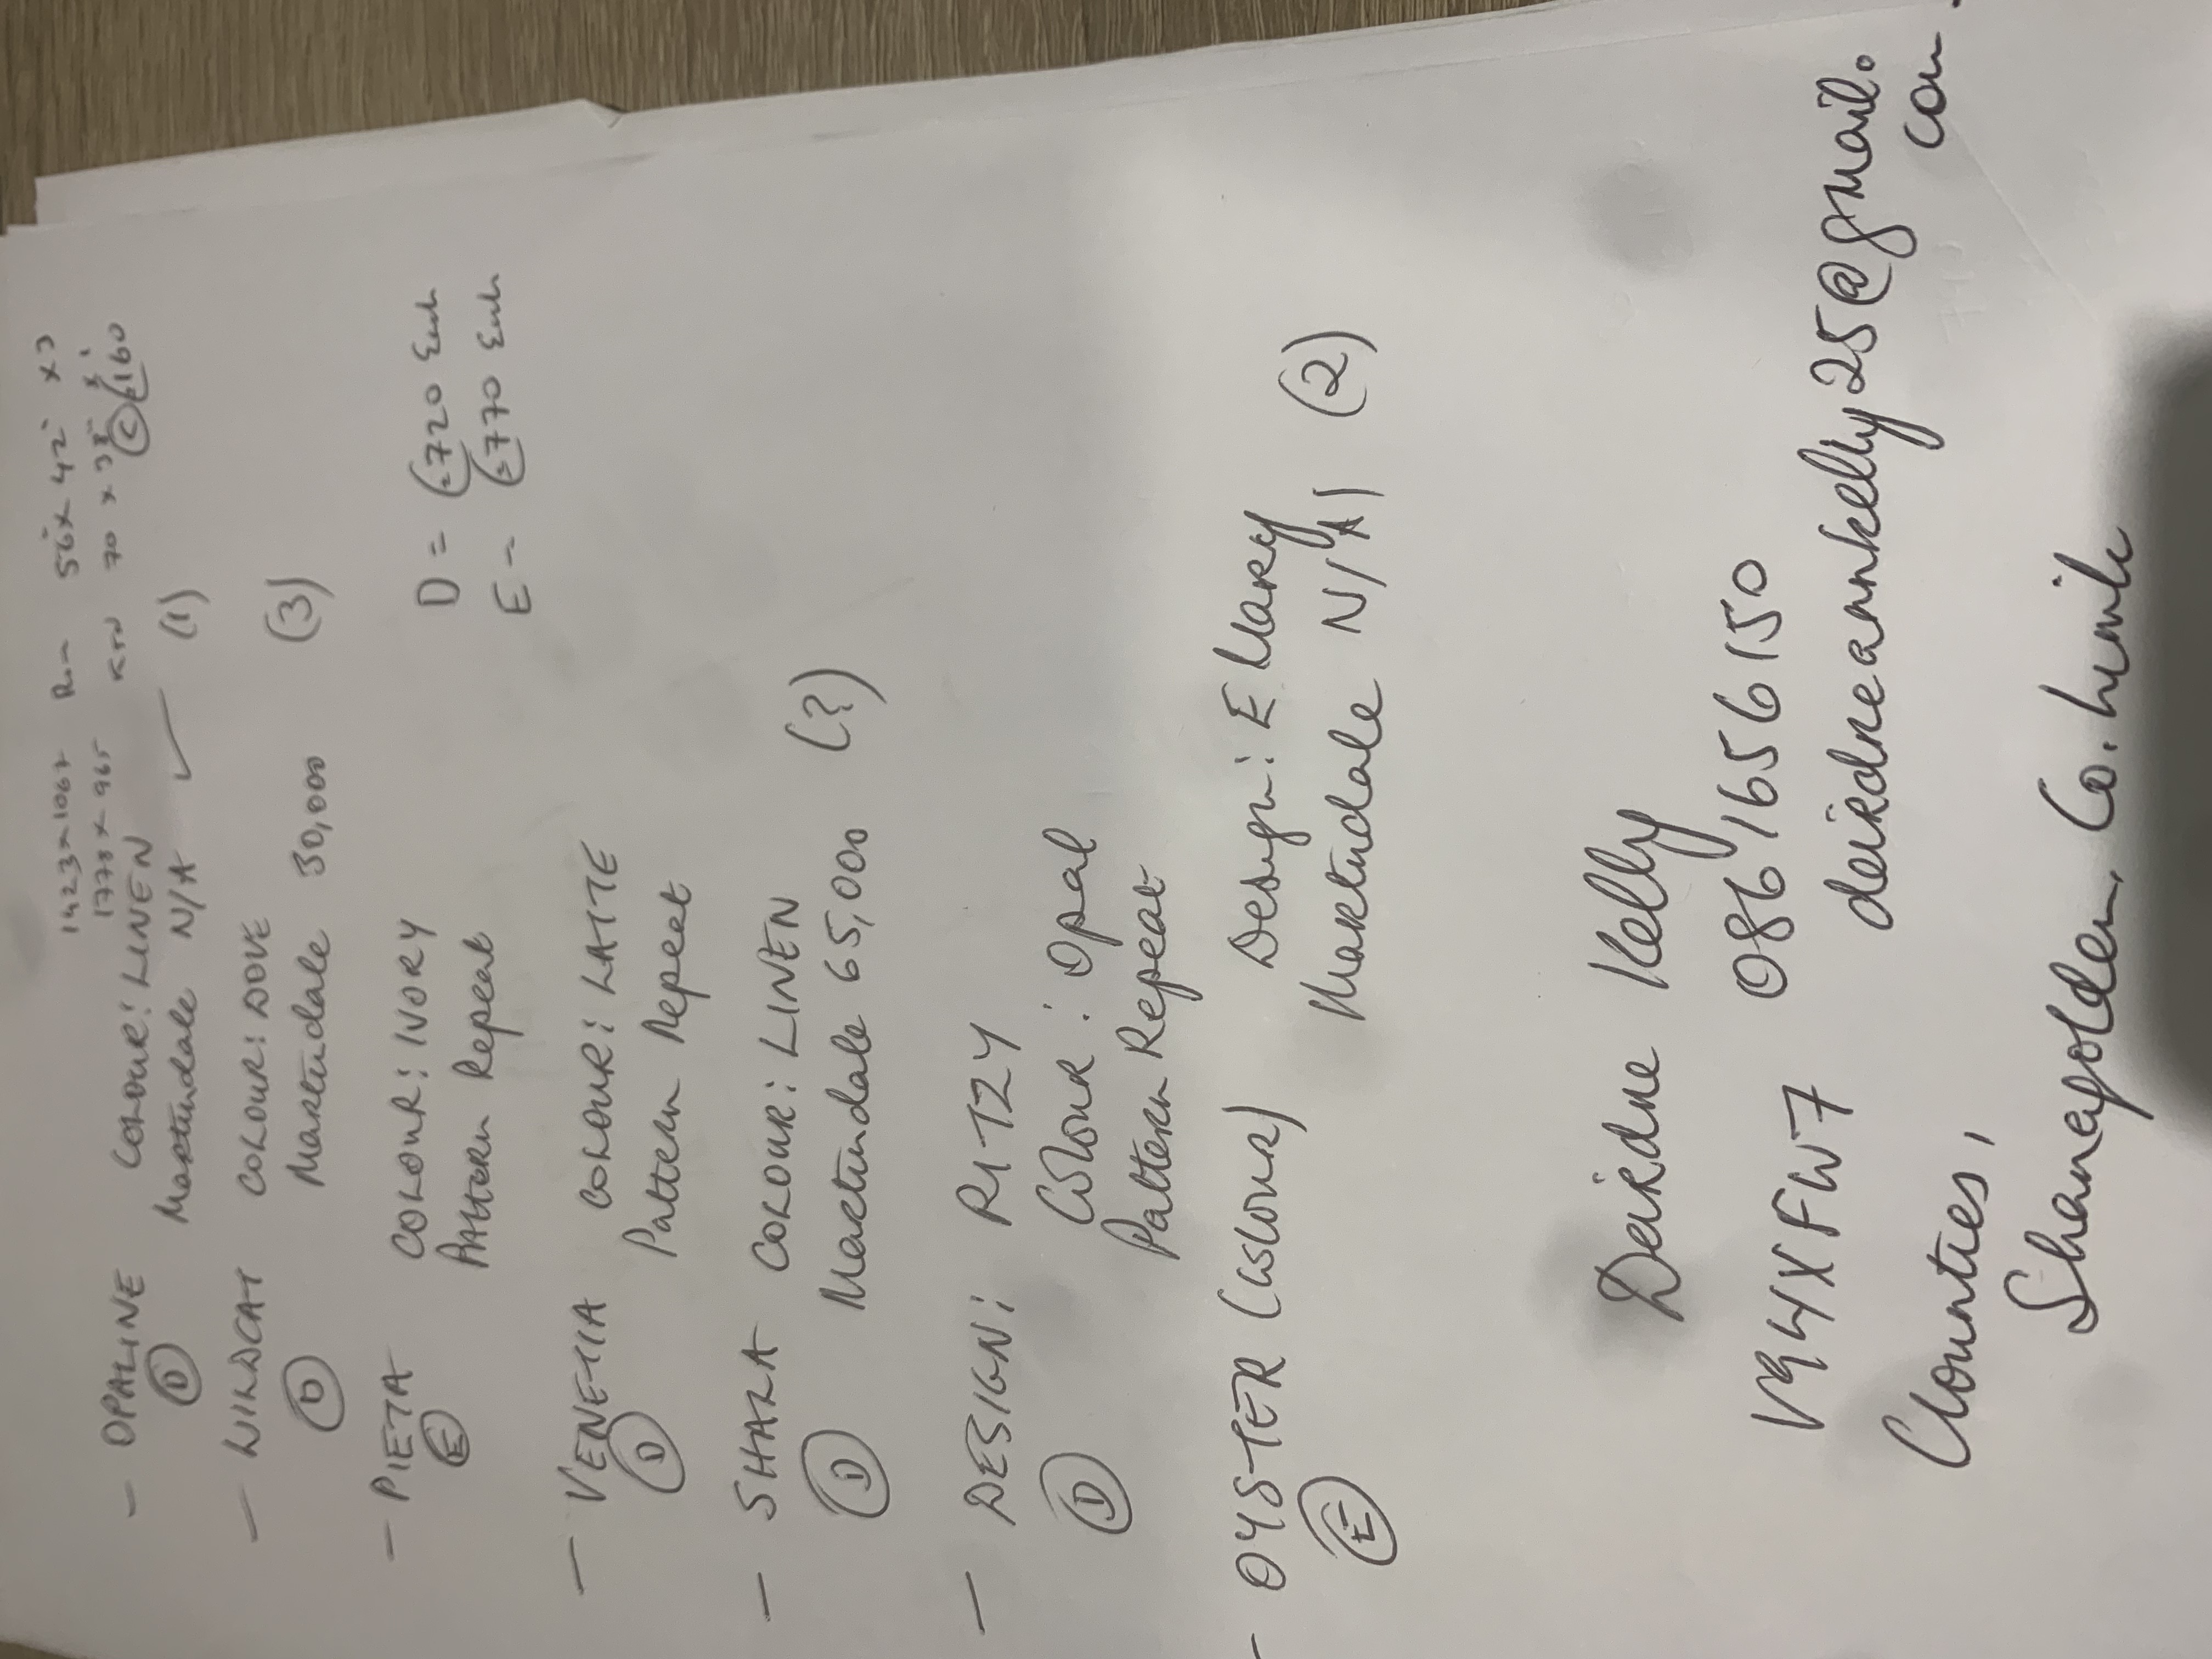 1423 x 1067 Rm 56 x 42 x 3
1778 x 965 KTN 70 x 38 x 1
- OPALINE COLOUR: LINEN © €160
D Martindale N/A ✓ (1)
- WILDCAT COLOUR: DOVE
D Martindale 30,000 (3)
- PIETA COLOUR: IVORY
E Pattern Repeat
D = €720 Each
E - €770 Each
- VENETIA COLOUR: LATTE
D Pattern Repeat
- SHARA COLOUR: LINEN
D Martindale 65,000 (?)
- DESIGN: RITZY
D Colour: Opal
Pattern Repeat
- OYSTER (colour) Design: Ellary
E Martindale N/A (2)
Deirdne Kelly
V94XFW7 0861656150
Clounties, deirdneannkelly25@gmail.
com
Shanagolden, Co.